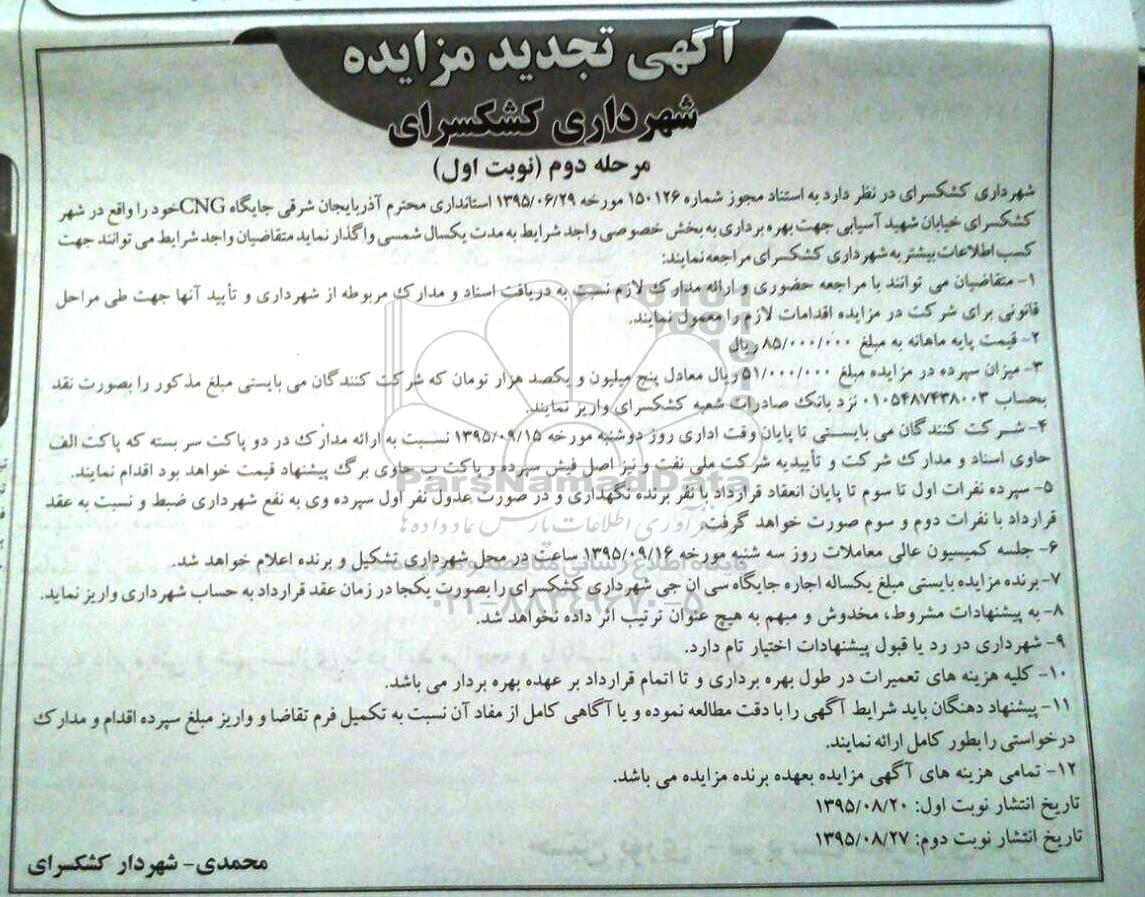 آگهی تجدید مزایده
شهرداری کشکسرای
مرحله دوم (نوبت اول)
شهرداری کشکسرای در نظر دارد به استناد مجوز شماره ۱۵۰۱۲۶ مورخه ۱۳۹۵/۰۶/۲۹ استانداری محترم آذربایجان شرقی جایگاه CNG خود را واقع در شهر
کشکسرای خیابان شهید آسیابی جهت بهره برداری به بخش خصوصی واجد شرایط به مدت یکسال شمسی واگذار نماید متقاضیان واجد شرایط می توانند جهت
کسب اطلاعات بیشتر به شهرداری کشکسرای مراجعه نمایند:
۱- متقاضیان می توانند با مراجعه حضوری و ارائه مدارک لازم نسبت به دریافت اسناد و مدارک مربوطه از شهرداری و تأیید آنها جهت طی مراحل
قانونی برای شرکت در مزایده اقدامات لازم را معمول نمایند.
۲- قیمت پایه ماهانه به مبلغ ۸۵/۰۰۰/۰۰۰ ریال
۳- میزان سپرده در مزایده مبلغ ۵۱/۰۰۰/۰۰۰ ریال معادل پنج میلیون و یکصد هزار تومان که شرکت کنندگان می بایستی مبلغ مذکور را بصورت نقد
بحساب ۰۱۰۵۴۸۷۴۳۸۰۰۳ نزد بانک صادرات شعبه کشکسرای واریز نمایند.
۴- شرکت کنندگان می بایستی تا پایان وقت اداری روز دوشنبه مورخه ۱۳۹۵/۰۹/۱۵ نسبت به ارائه مدارک در دو پاکت سر بسته که پاکت الف
حاوی اسناد و مدارک شرکت و تأییدیه شرکت ملی نفت و نیز اصل فیش سپرده و پاکت ب حاوی برگ پیشنهاد قیمت خواهد بود اقدام نمایند.
۵- سپرده نفرات اول تا سوم تا پایان انعقاد قرارداد با نفر برنده نگهداری و در صورت عدول نفر اول سپرده وی به نفع شهرداری ضبط و نسبت به عقد
قرارداد با نفرات دوم و سوم صورت خواهد گرفت.
۶- جلسه کمیسیون عالی معاملات روز سه شنبه مورخه ۱۳۹۵/۰۹/۱۶ ساعت در محل شهرداری تشکیل و برنده اعلام خواهد شد.
۷- برنده مزایده بایستی مبلغ یکساله اجاره جایگاه سی ان جی شهرداری کشکسرای را بصورت یکجا در زمان عقد قرارداد به حساب شهرداری واریز نماید.
۸- به پیشنهادات مشروط، مخدوش و مبهم به هیچ عنوان ترتیب اثر داده نخواهد شد.
۹- شهرداری در رد یا قبول پیشنهادات اختیار تام دارد.
۱۰- کلیه هزینه های تعمیرات در طول بهره برداری و تا اتمام قرارداد بر عهده بهره بردار می باشد.
۱۱- پیشنهاد دهنگان باید شرایط آگهی را با دقت مطالعه نموده و با آگاهی کامل از مفاد آن نسبت به تکمیل فرم تقاضا و واریز مبلغ سپرده اقدام و مدارک
درخواستی را بطور کامل ارائه نمایند.
۱۲- تمامی هزینه های آگهی مزایده بعهده برنده مزایده می باشد.
تاریخ انتشار نوبت اول: ۱۳۹۵/۰۸/۲۰
تاریخ انتشار نوبت دوم: ۱۳۹۵/۰۸/۲۷
محمدی- شهردار کشکسرای
ParsNamadData